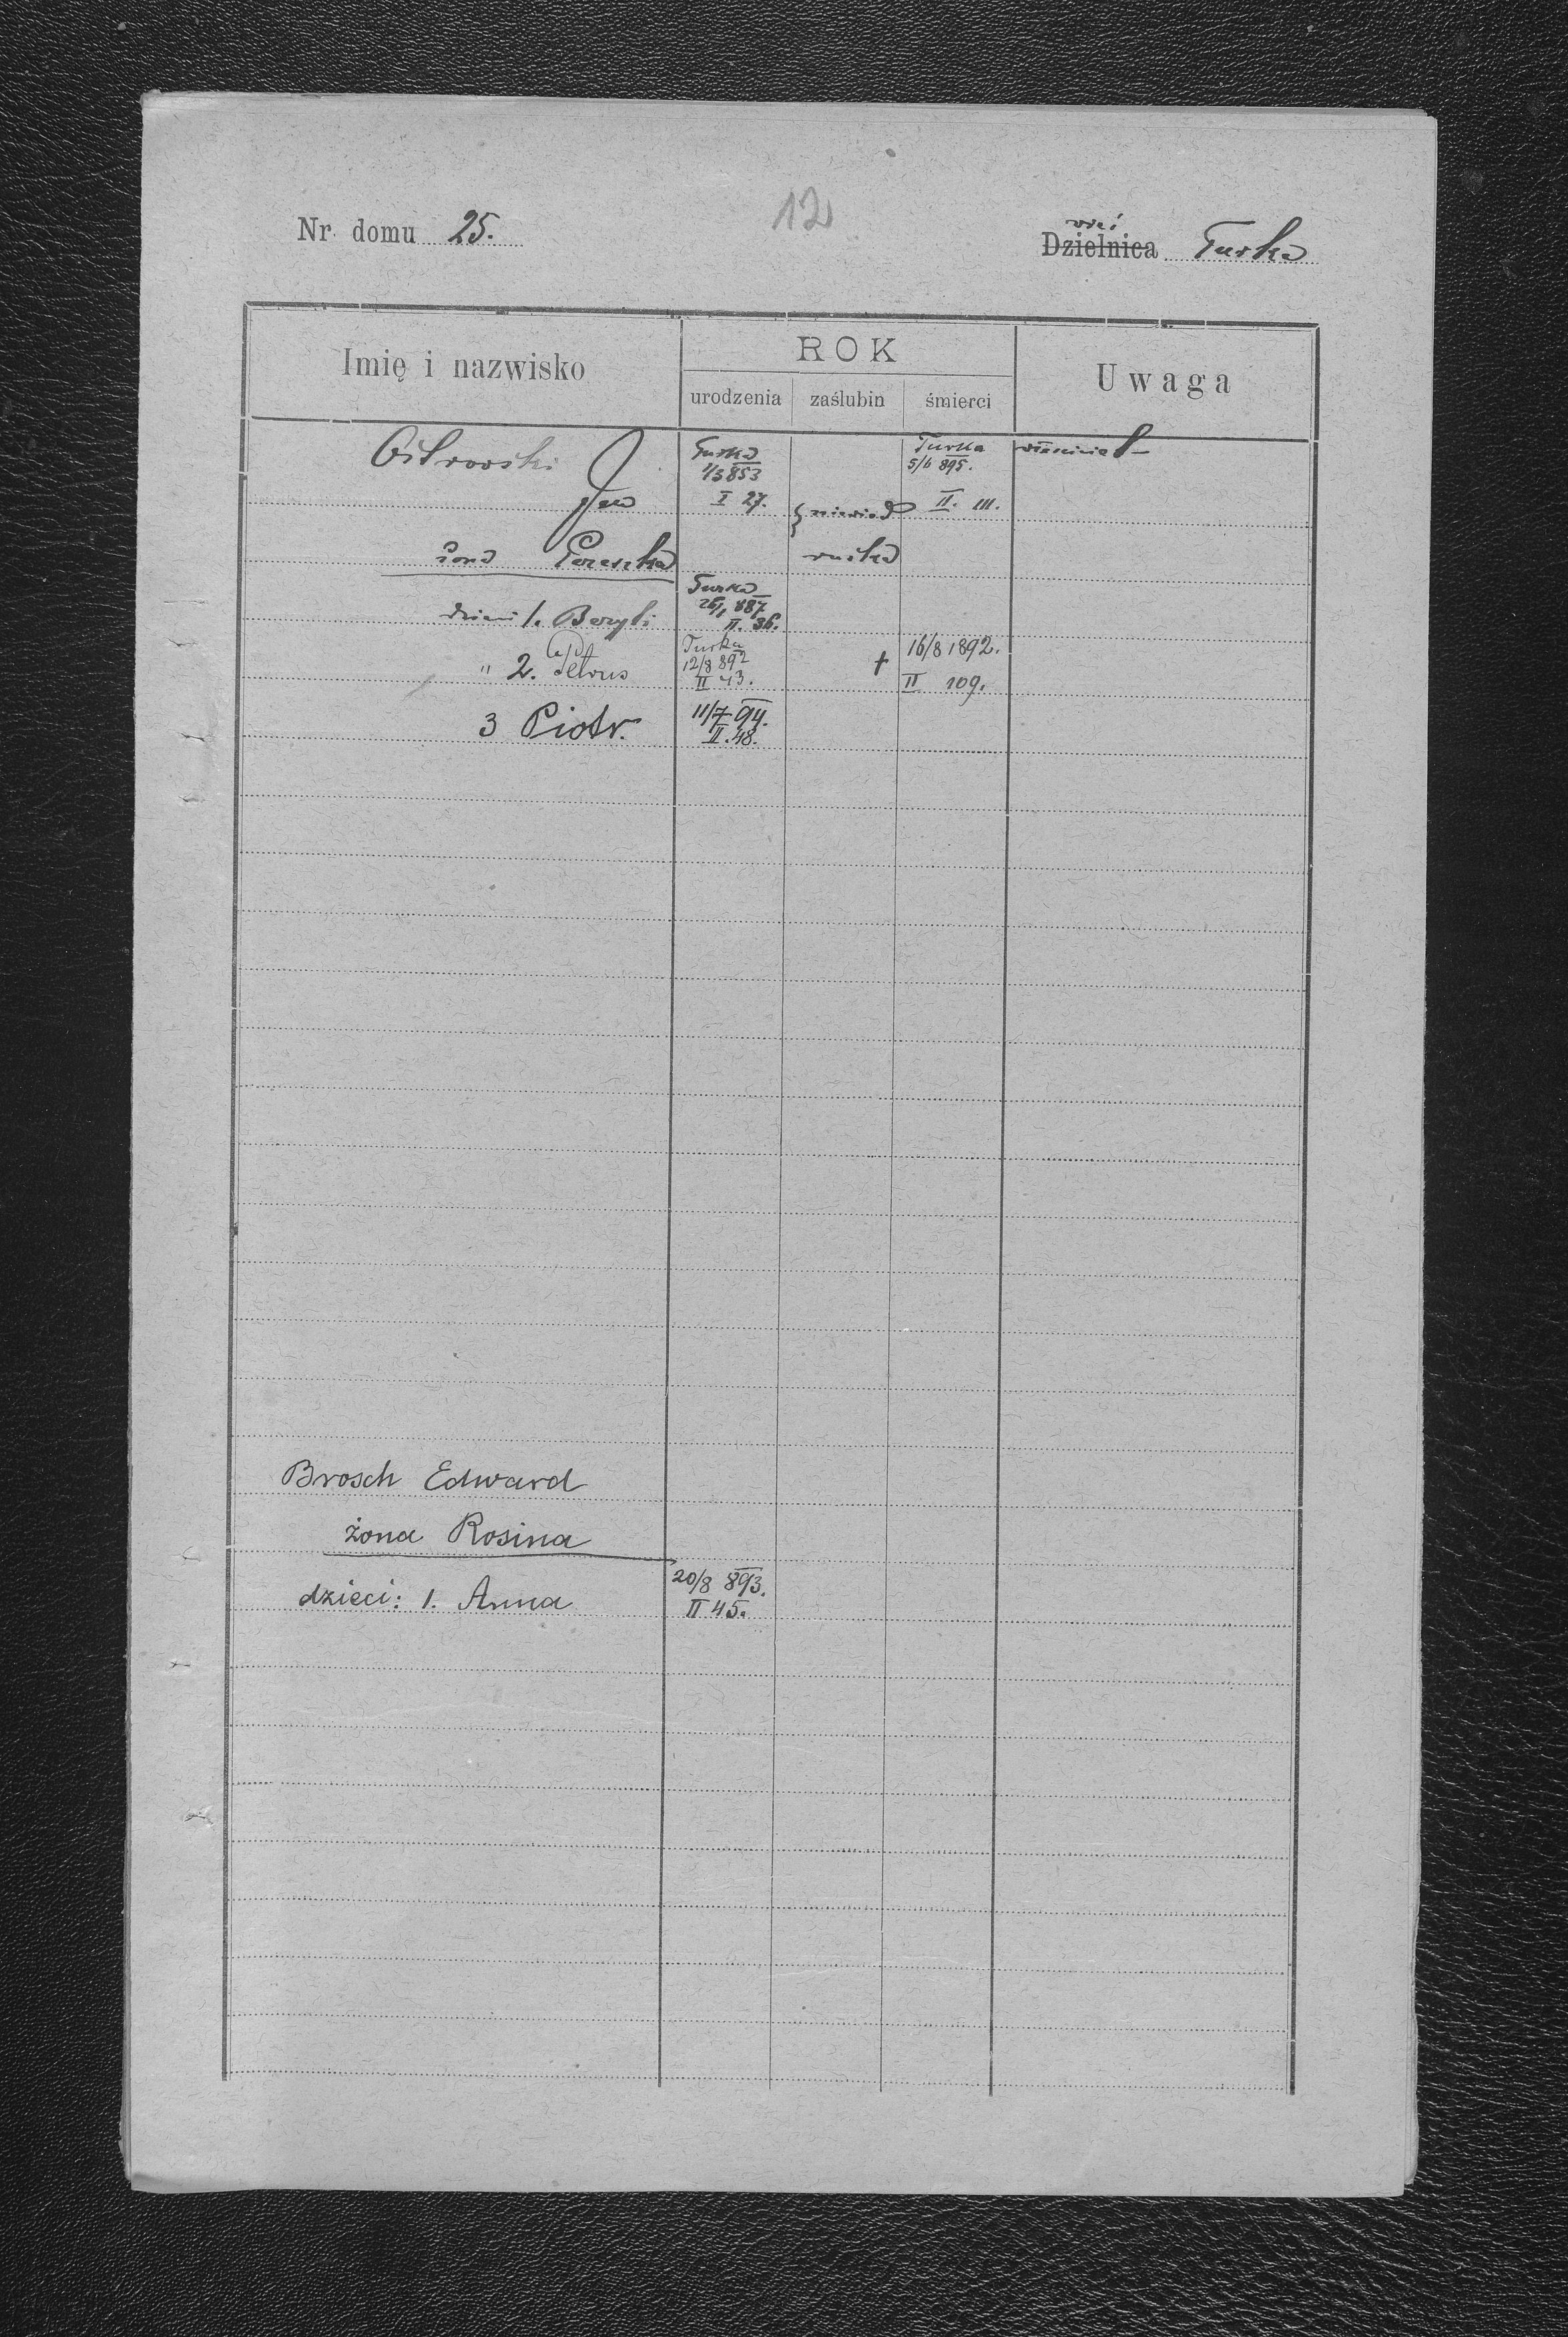 12
Nr. domu 25.
wieś
Dzielnica Turka
Imię i nazwisko
ROK
urodzenia zaślubin śmierci
Uwaga
Turka Turka
1/3 853 5/6 895.
Jan I 27. II. 111.
żona
Turka
26/1 887
dzieci 1. II. 36.
Turka 16/8 1892.
" 2. Petrus 12/8 892 †
II 43. II 109.
3 Piotr. 11/7 94.
II. 48.
Brosch Edward
żona Rosina
dzieci: 1. Anna 20/8 893.
II 45.